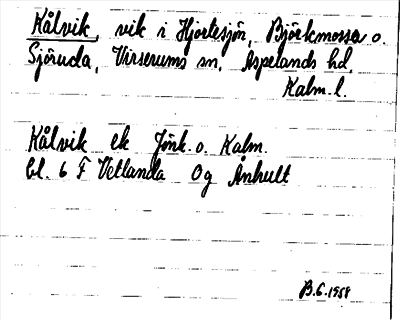 Kålvik, vik i Hjortesjön, Björkmossa o.
Sjöruda, Virserums sn, Aspelands hd,
Kalm. l.
Kålvik ek Jönk. o. Kalm.
bl. 6 F Vetlanda Og Ånhult
B.G. 1958